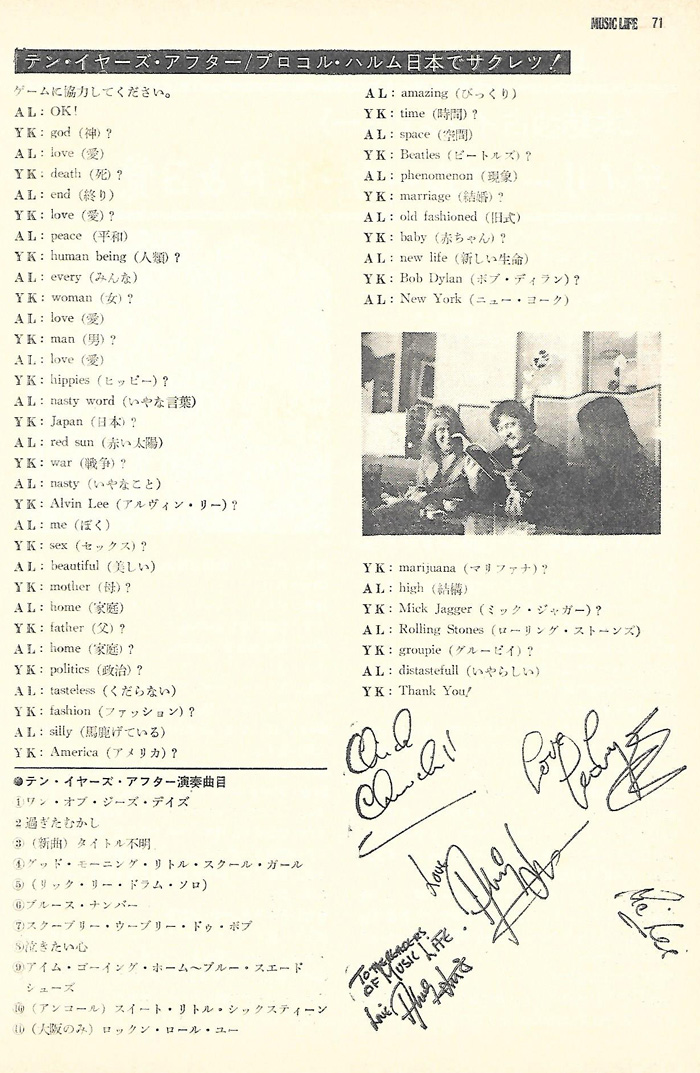 MUSIC LIFE 71
テン・イヤーズ・アフター/プロコル・ハルム日本でサクレツ!
ゲームに協力してください。
AL: OK!
YK: god (神)?
AL: love (愛)
YK: death (死)?
AL: end (終り)
YK: love (愛)?
AL: peace (平和)
YK: human being (人類)?
AL: every (みんな)
YK: woman (女)?
AL: love (愛)
YK: man (男)?
AL: love (愛)
YK: hippies (ヒッピー)?
AL: nasty word (いやな言葉)
YK: Japan (日本)?
AL: red sun (赤い太陽)
YK: war (戦争)?
AL: nasty (いやなこと)
YK: Alvin Lee (アルヴィン・リー)?
AL: me (ぼく)
YK: sex (セックス)?
AL: beautiful (美しい)
YK: mother (母)?
AL: home (家庭)
YK: father (父)?
AL: home (家庭)?
YK: politics (政治)?
AL: tasteless (くだらない)
YK: fashion (ファッション)?
AL: silly (馬鹿げている)
YK: America (アメリカ)?
●テン・イヤーズ・アフター演奏曲目
①ワン・オブ・ジーズ・デイズ
2 過ぎたむかし
③(新曲)タイトル不明
④グッド・モーニング・リトル・スクール・ガール
⑤(リック・リー・ドラム・ソロ)
⑥ブルース・ナンバー
⑦スクーブリー・ウーブリー・ドゥ・ボブ
8)泣きたい心
⑨アイム・ゴーイング・ホーム〜ブルー・スエード
シューズ
⑩(アンコール)スイート・リトル・シックスティーン
⑪(大阪のみ)ロックン・ロール・ユー
AL: amazing (びっくり)
YK: time (時間)?
AL: space (空間)
YK: Beatles (ビートルズ)?
AL: phenomenon (現象)
YK: marriage (結婚)?
AL: old fashioned (旧式)
YK: baby (赤ちゃん)?
AL: new life (新しい生命)
YK: Bob Dylan (ボブ・ディラン)?
AL: New York (ニュー・ヨーク)
YK: marijuana (マリファナ)?
AL: high (結構)
YK: Mick Jagger (ミック・ジャガー)?
AL: Rolling Stones (ローリング・ストーンズ)
YK: groupie (グルーピイ)?
AL: distastefull (いやらしい)
YK: Thank You!
Chick
Churchill
Love
Love
TO THE READERS
OF MUSIC LIFE.
Love